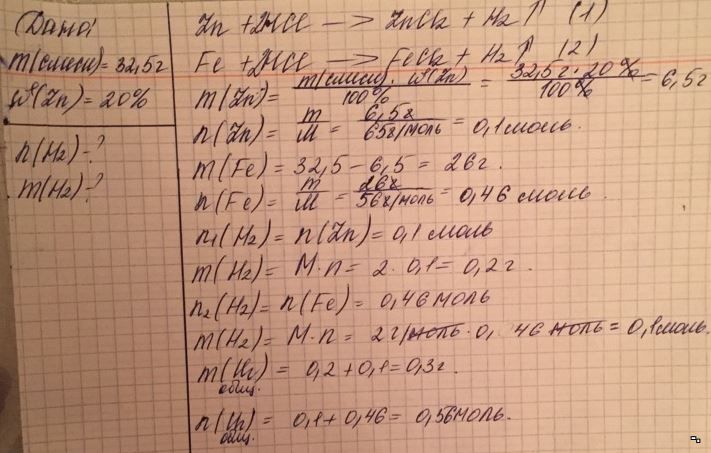 Дано:
m(смеси) = 32,5г
W(Zn) = 20%
n(H2) - ?
m(H2) - ?
Zn + 2HCl —> ZnCl2 + H2↑ (1)
Fe + 2HCl —> FeCl2 + H2↑ (2)
m(Zn) = m(смеси) · W(Zn) / 100% = 32,5г · 20% / 100% = 6,5г
n(Zn) = m / M = 6,5г / 65г/моль = 0,1 моль.
m(Fe) = 32,5 - 6,5 = 26г.
n(Fe) = m / M = 26г / 56г/моль = 0,46 моль.
n1(H2) = n(Zn) = 0,1 моль
m(H2) = M·n = 2 · 0,1 = 0,2г.
n2(H2) = n(Fe) = 0,46 моль
m(H2) = M·n = 2г/моль · 0,46 моль = 0,1 моль.
m(H2) общ. = 0,2 + 0,1 = 0,3г.
n(H2) общ. = 0,1 + 0,46 = 0,56 моль.